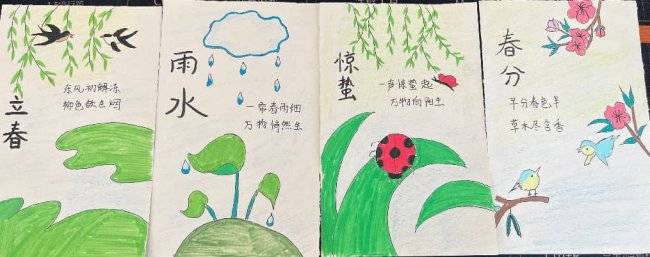 立春
东风初解冻
柳色
雨水
一帘春雨细
万物悄然生
惊蛰
一声惊蛰起
万物向阳生
春分
平分春色早
草木尽含香